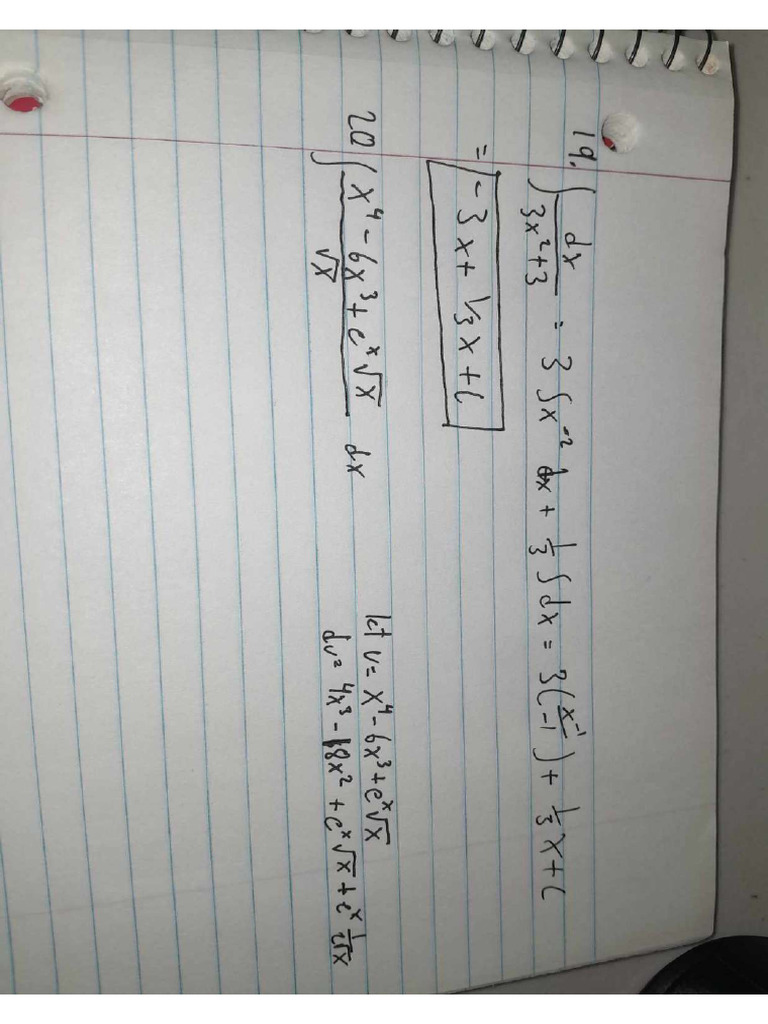 19. ∫ dx/(3x²+3) = 3∫x⁻² dx + 1/3 ∫dx = 3(x⁻¹/-1) + 1/3 x + C
= -3x + 1/3 x + C
20 ∫ (x⁴ - 6x³ + eˣ√x)/√x dx
let u = x⁴ - 6x³ + eˣ√x
du = 4x³ - 18x² + eˣ√x + eˣ 1/2√x